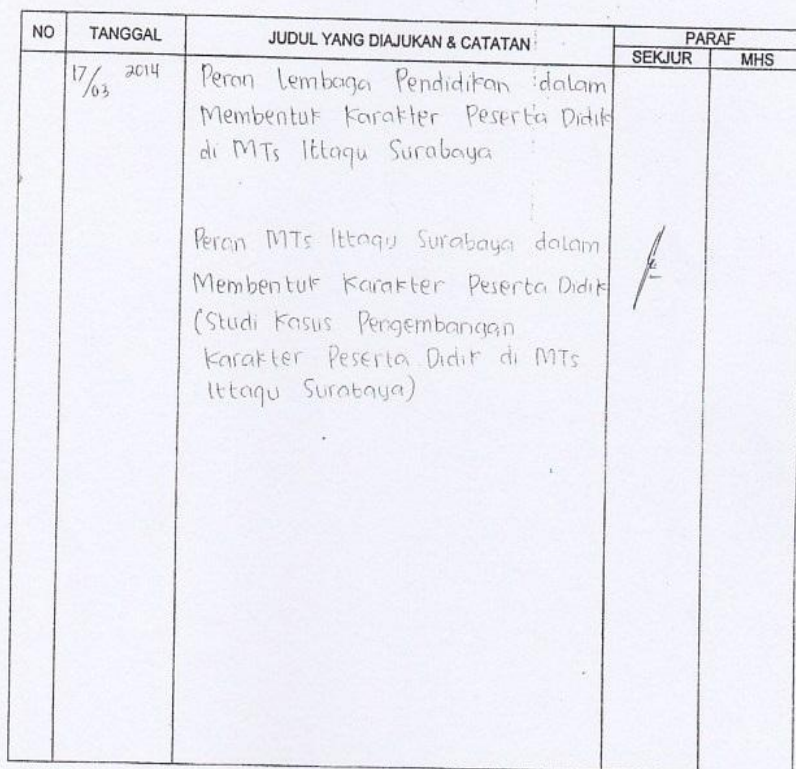 NO TANGGAL JUDUL YANG DIAJUKAN & CATATAN PARAF
SEKJUR MHS
17/03 2014 Peran Lembaga Pendidikan dalam
Membentuk Karakter Peserta Didik
di MTs Ittaqu Surabaya
Peran MTs Ittaqu Surabaya dalam
Membentuk Karakter Peserta Didik
(Studi Kasus Pengembangan
Karakter Peserta Didik di MTs
Ittaqu Surabaya)